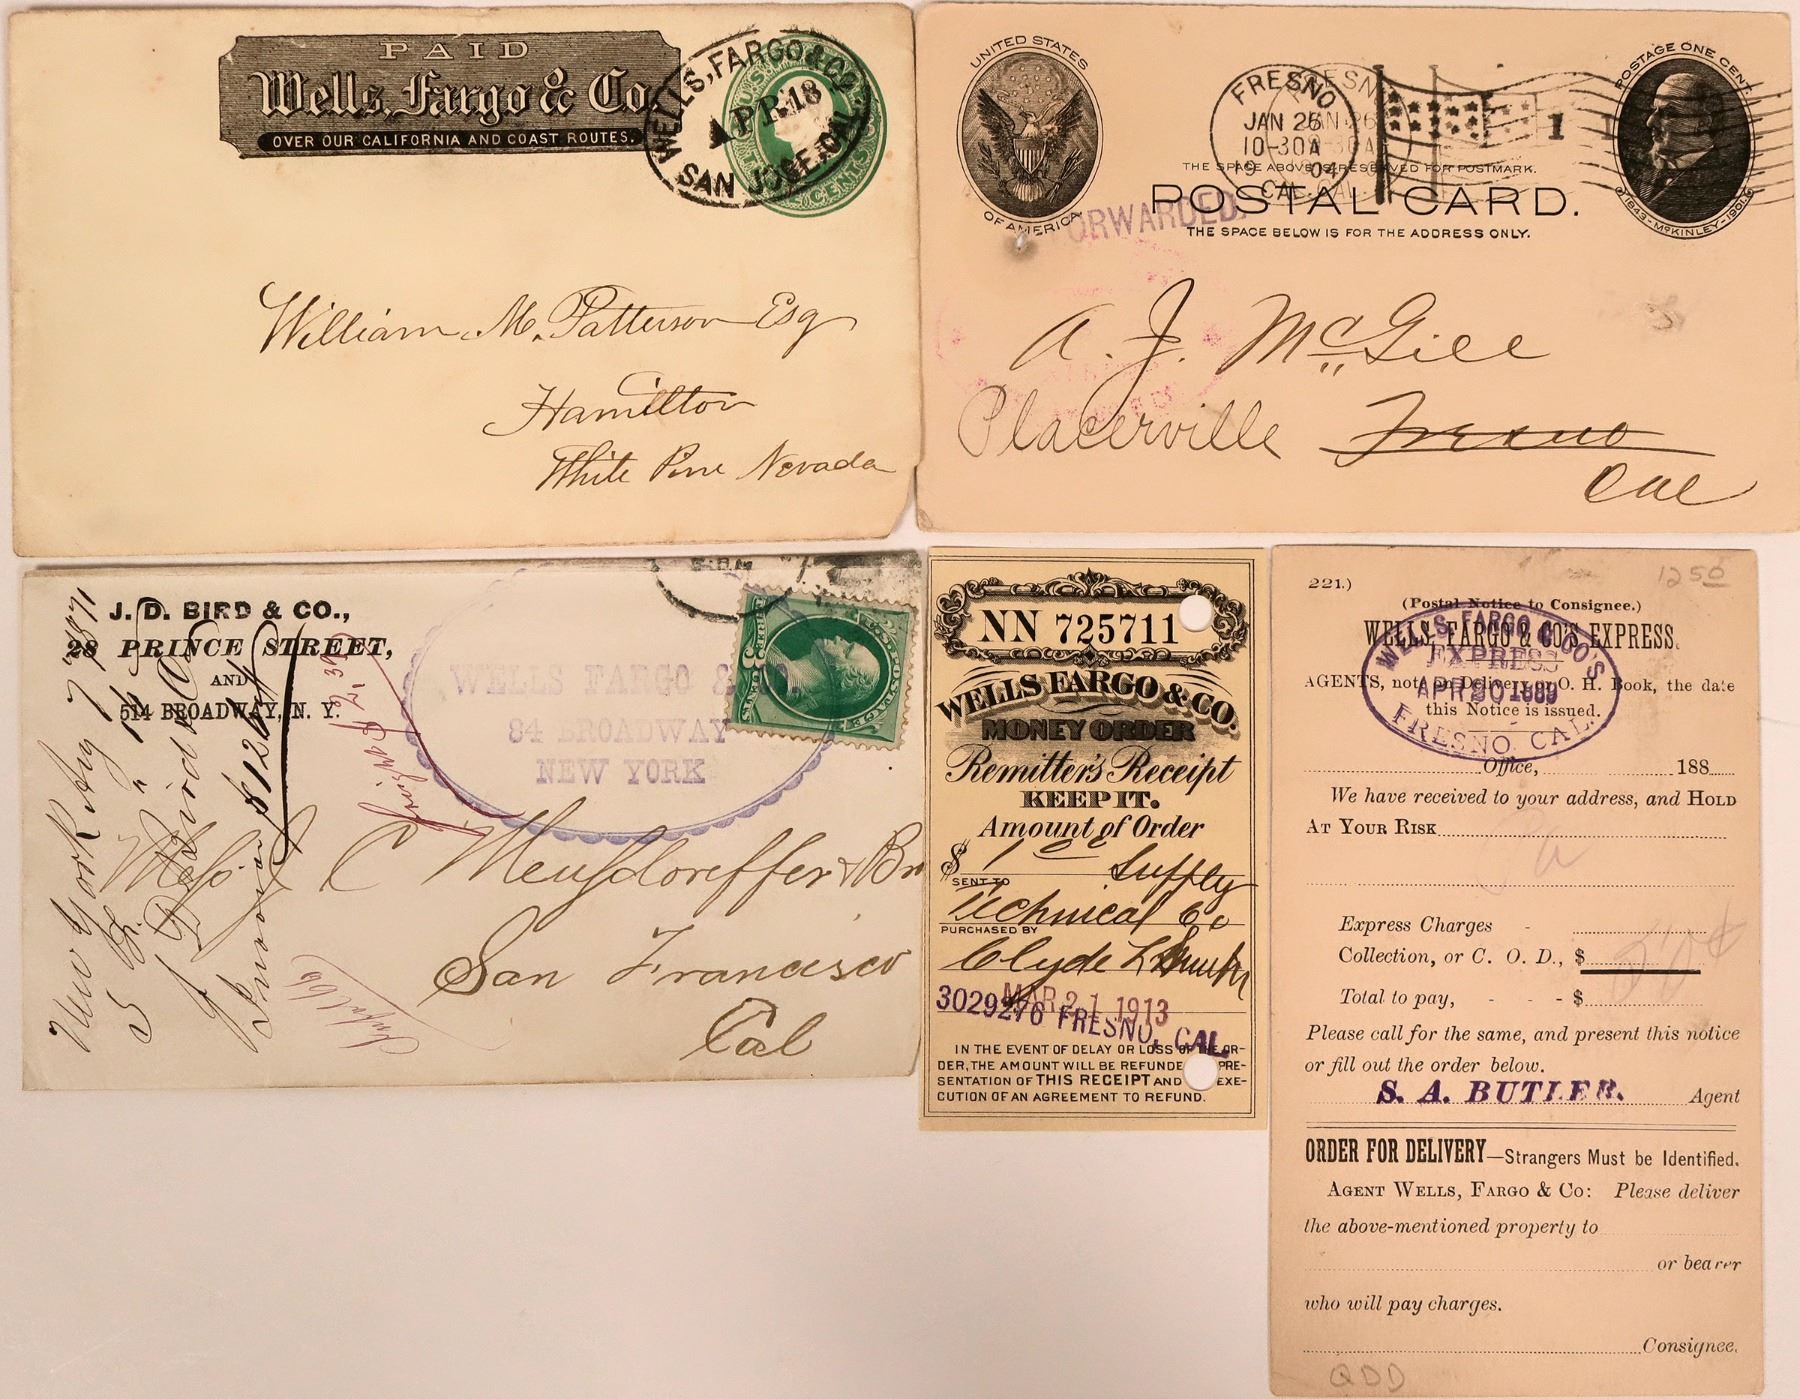 PAID
Wells, Fargo & Co.
OVER OUR CALIFORNIA AND COAST ROUTES.
WELLS, FARGO & CO.
APR 18
SAN JOSE, CAL.
CENTS
William M. Patterson Esq
Hamilton
White Pine Nevada
UNITED STATES
OF AMERICA
FRESNO
JAN 26
10-30A
19 04
CAL.
1
POSTAGE ONE CENT
1843-McKINLEY-1901
THE SPACE ABOVE IS RESERVED FOR POSTMARK.
POSTAL CARD.
THE SPACE BELOW IS FOR THE ADDRESS ONLY.
FORWARDED.
A. J. McGill
Placerville Fresno
Cal
J. D. BIRD & CO.,
28 PRINCE STREET,
AND
514 BROADWAY, N. Y.
New York Aug 7 1871
J. D. Bird & Co
Invoice $126
WELLS FARGO & CO.
84 BROADWAY
NEW YORK
Mess C Meusdorffer & Br
San Francisco
Cal
NN 725711
WELLS FARGO & CO.
MONEY ORDER
Remitter's Receipt
KEEP IT.
Amount of Order
$ 1 00
SENT TO Supply
Technical Co
PURCHASED BY
Clyde L
MAR 21 1913
3029276 FRESNO, CAL.
IN THE EVENT OF DELAY OR LOSS OF THE OR-
DER, THE AMOUNT WILL BE REFUNDED PRE-
SENTATION OF THIS RECEIPT AND EXE-
CUTION OF AN AGREEMENT TO REFUND.
221.)
12 50
(Postal Notice to Consignee.)
WELLS, FARGO & CO'S EXPRESS.
WELLS FARGO & CO'S
EXPRESS
APR 20 1889
FRESNO, CAL.
AGENTS, note on Delivery or O. H. Book, the date
this Notice is issued.
Office, 188
We have received to your address, and HOLD
AT YOUR RISK
Express Charges -
Collection, or C. O. D., $
Total to pay, - - - $
Please call for the same, and present this notice
or fill out the order below.
S. A. BUTLER. Agent
ORDER FOR DELIVERY—Strangers Must be Identified.
AGENT WELLS, FARGO & CO: Please deliver
the above-mentioned property to
or bearer
who will pay charges.
Consignee.
QDD